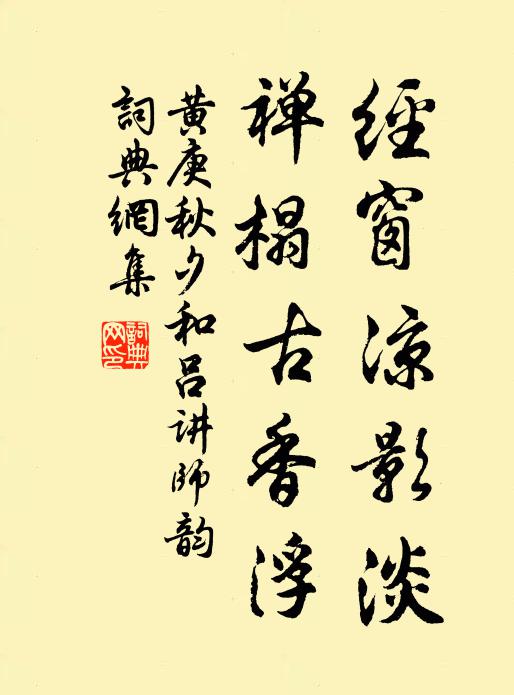 經窗涼影淡
禅榻古香浮
黄庚秋夕和吕讲師韵
詞典網集
詞典网印